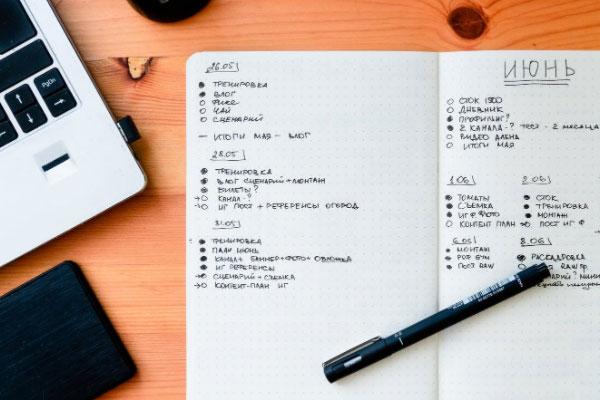 26.05
ТРЕНИРОВКА
ВЛОГ
ФИКС
ЧАЙ
СЦЕНАРИЙ
— ИТОГИ МАЯ — ВЛОГ
28.05
ТРЕНИРОВКА
ВЛОГ СЦЕНАРИЙ + МОНТАЖ
БИЛЕТЫ?
КАНАЛ -?
ИГ ПОСТ + РЕФЕРЕНСЫ ОГОРОД
31.05
ТРЕНИРОВКА
ПЛАН ИЮНЬ
КАНАЛ + БАННЕР + ФОТО + ОБЛОЖКА
ИГ РЕФЕРЕНСЫ
СЦЕНАРИЙ + СЪЕМКА
КОНТЕНТ-ПЛАН ИГ
ИЮНЬ
СТОК 1500
ДНЕВНИК
ПРОФИЛИНГ?
2 КАНАЛА -? ТЕСТ - 2 МЕСЯЦА
ВИДЕО АЛЕНА
ИТОГИ МАЯ
1.06
ТОМАТЫ
СЪЕМКА
ИГ Ф ФОТО
КОНТЕНТ ПЛАН
2.06
СТОК
ТРЕНИРОВКА
МОНТАЖ
ПОСТ ИГ Ф
6.06
МОНТАЖ
POP GYM
ПОСТ RAW
8.06
РАСКАДРОВКА
RAW
PgUp
PgDn